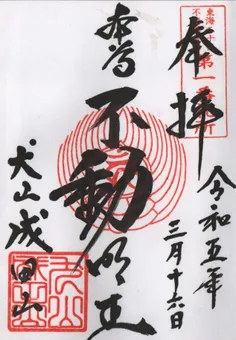 奉拝
東海三十六
不動
第一番札所
令和五年
三月十六日
本尊
不動明王
犬山成田山